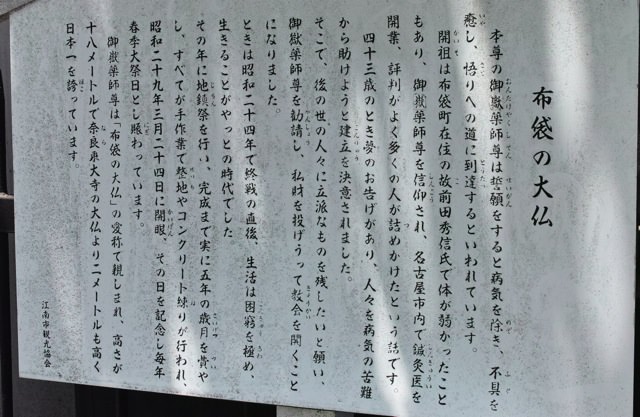 布袋の大仏
本尊の御嶽薬師尊は誓願をすると病気を除き、不具を
癒し、悟りへの道に到達するといわれています。
開祖は布袋町在住の故前田秀信氏で体が弱かったこと
もあり、御嶽薬師尊を信仰され、名古屋市内で鍼灸医を
開業、評判がよく多くの人が詰めかけたという話です。
四十三歳のとき夢のお告げがあり、人々を病気の苦難
から助けようと建立を決意されました。
そこで、後の世の人々に立派なものを残したいと願い、
御嶽薬師尊を勧請し、私財を投げうって教会を開くこと
になりました。
ときは昭和二十四年で終戦の直後、生活は困窮を極め、
生きることがやっとの時代でした
その年に地鎮祭を行い、完成まで実に五年の歳月を費や
し、すべてが手作業で整地やコンクリート練りが行われ、
昭和二十九年三月二十四日に開眼、その日を記念し毎年
春季大祭日とし賑わっています。
御嶽薬師尊は「布袋の大仏」の愛称で親しまれ、高さが
十八メートルで奈良東大寺の大仏より二メートルも高く
日本一を誇っています。
江南市観光協会